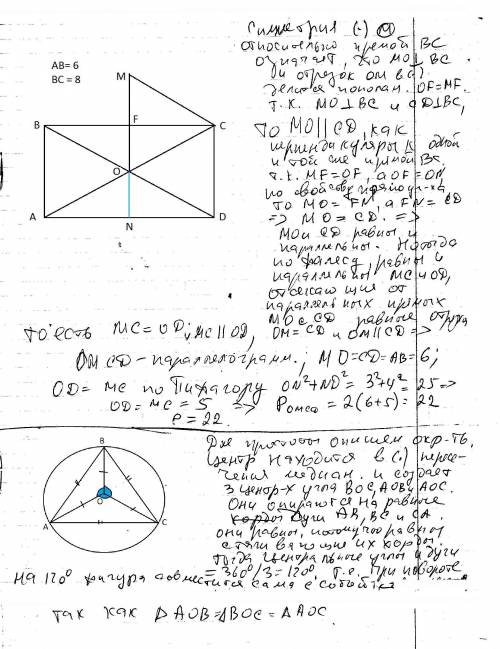 AB= 6
BC = 8
M
B
F
C
O
A
N
D
Симметрия (·) M
относительно прямой BC
означает, что MO⊥BC
и отрезок OM в (·)
делится пополам. OF=MF.
Т.к. MO⊥BC и CD⊥BC,
то MO||CD, как
перпендикуляры к одной
и той же прямой BC.
т.к. MF=OF, а OF=ON,
по свойству
то MO= FN, а FN = CD
=> MO = CD. =>
MO и CD равны и
параллельны. Но тогда
по Фалесу равны и
параллельны MC и OD,
отсекающие от
параллельных прямых
MO и CD равные
OM=CD и OM||CD =>
то есть MC=OD и MC||OD,
OMCD-параллелограмм.; MO=CD=AB=6;
OD= MC по Пифагору ON²+ND²= 3²+4²= 25 =>
OD= MC = 5 => Pомcd = 2(6+5)= 22
P=22.
B
O
A
C
опишем окр-ть.
Центр находится в (·) пересе-
чения медиан. и создает
3 центр-х угла BOC, AOB и AOC.
Они опираются на равные
дуги AB, BC и CA.
они равны, потому что равны
стягивающие их хорды.
Тогда центральные углы и дуги
= 360°/3 = 120°, т.е. при повороте
на 120° фигура совместится сама с собой
так как ΔAOB=ΔBOC=ΔAOC.